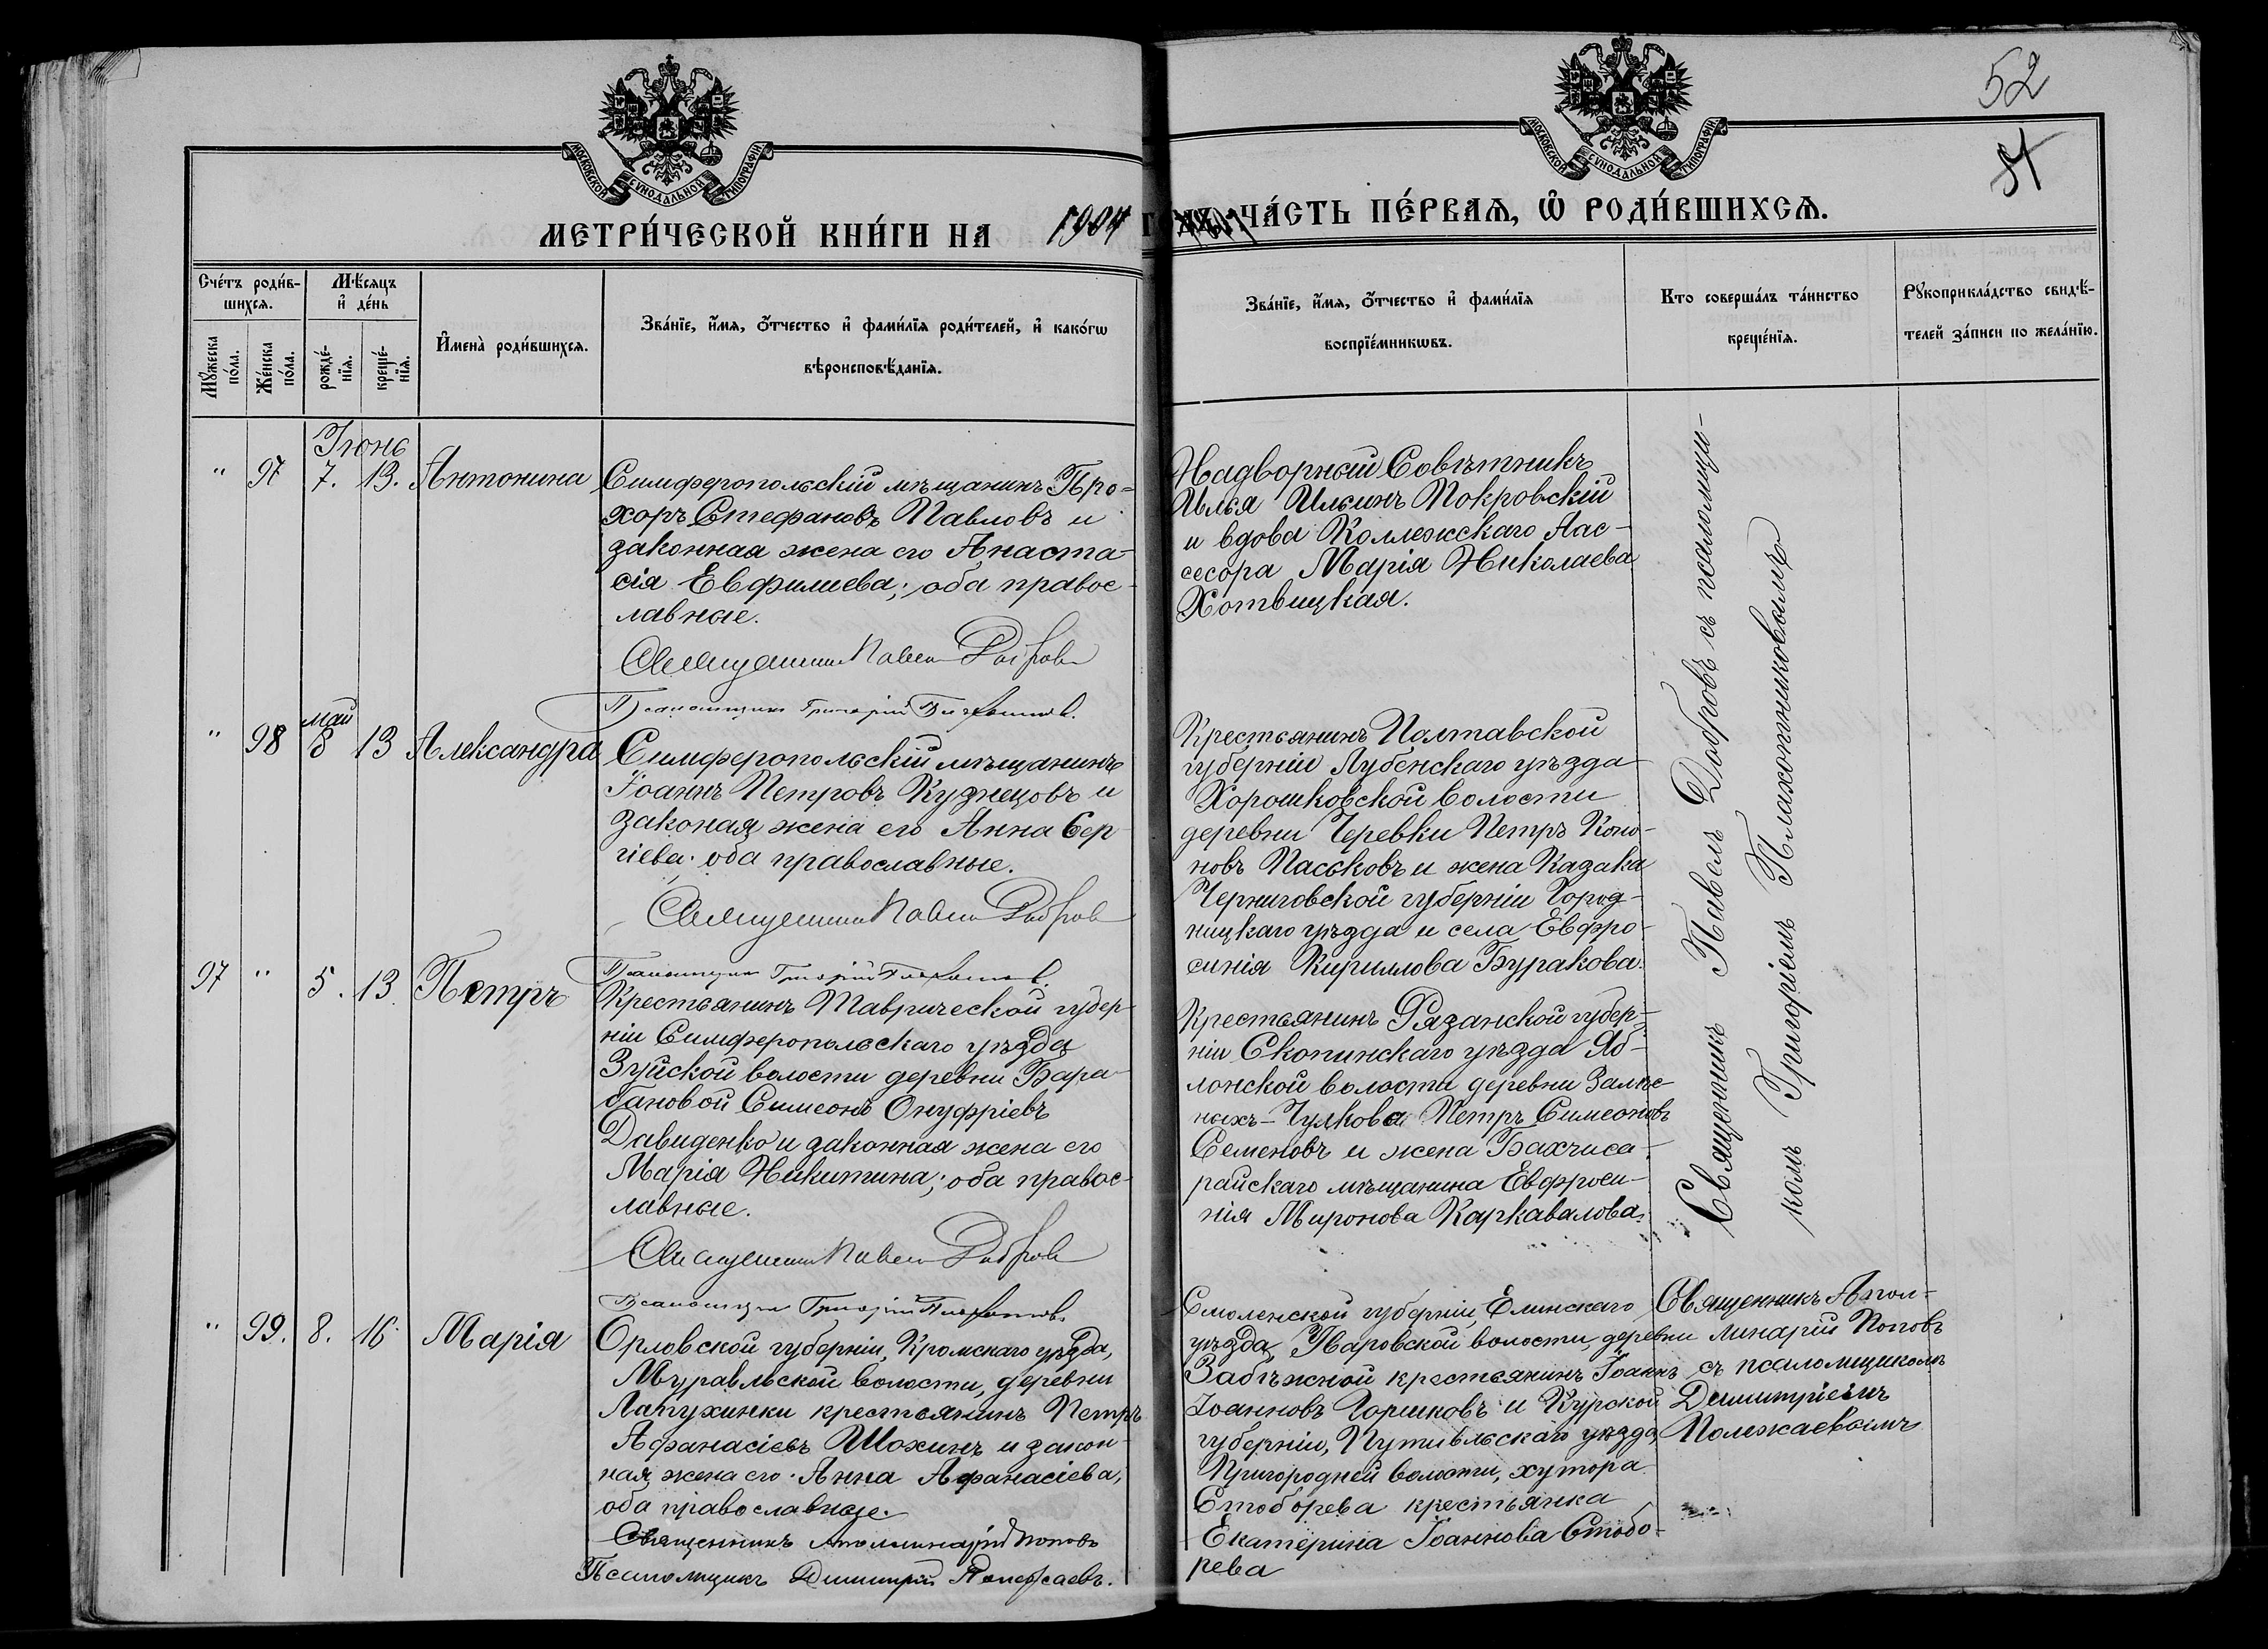 52
51
МОСКОВСКОЙ СѴНОДАЛЬНОЙ ТИПОГРАФІИ
МОСКОВСКОЙ СѴНОДАЛЬНОЙ ТИПОГРАФІИ
МЕТРИ́ЧЕСКОЙ КНИ́ГИ НА 1904
ЧА́СТЬ ПЕ́РВАѦ, Ѡ҆ РОДИ́ВШИХСѦ.
Сче́тъ роди́в-
шихсѧ.
Мꙋ́жеска по́ла.
Же́нска по́ла.
Мѣ́сяцъ
и҆ де́нь
рожде́-
нїѧ.
креще́-
нїѧ.
И҆мена̀ роди́вшихсѧ.
Зва́нїе, и҆́мѧ, ѻ҆́тчество и҆ фами́лїѧ роди́телей, и҆ како́гѡ
вѣроисповѣ́данїѧ.
Зва́нїе, и҆́мѧ, ѻ҆́тчество и҆ фами́лїѧ
воспрїе́мникѡвъ.
Кто соверша́лъ та́инство
креще́нїѧ.
Рꙋкоприкла́дство свидѣ́-
телей за́писи по жела́нїю.
Іюнь
" 97 7. 13. Антонина
Симферопольскій мѣщанинъ Про=
хоръ Стефановъ Павловъ и
законная жена его Анаста-
сія Евфимиева; оба правос-
лавные.
Священникъ Павелъ Добровъ
Псаломщикъ Григорій Плахотниковъ.
Надворный Совѣтникъ
Илья Ильинъ Покровскій
и вдова Коллежскаго Ас-
сесора Марія Николаева
Хотвицкая.
май
" 98 8 13 Александра
Симферопольскій мѣщанинъ
Іоаннъ Петровъ Кузнецовъ и
законая жена его Анна Сер
гіева; оба православные.
Священникъ Павелъ Добровъ
Псаломщикъ Григорій Плахотниковъ.
Крестьянинъ Полтавской
губерніи Лубенскаго уѣзда
Хорошковской волости
деревни Черевки Петръ Коно-
новъ Паськовъ и жена Казака
Черниговской губерніи Город-
ницкаго уѣзда и села Евфро-
синія Кириллова Буракова.
97 " 5. 13. Петръ
Крестьянинъ Таврической губер-
ніи Симферопольскаго уѣзда
Зуйской волости деревни Бара-
бановой Симеонъ Онуфріевъ
Давиденко и законная жена его
Марія Никитина; оба правос-
лавные.
Священникъ Павелъ Добровъ
Псаломщикъ Григорій Плахотниковъ.
Крестьянинъ Рязанской губер-
ніи Скопинскаго уѣзда Яб-
лонской волости деревни
Чулкова Петръ Симеоновъ
Семеновъ и жена Бахчиса-
райскаго мѣщанина Евфроси-
нія Миронова Каркавалова.
Священникъ Павелъ Добровъ съ псаломщи-
комъ Григоріемъ Плахотниковымъ
" 99. 8. 16. Марія
Орловской губерніи, Кромскаго уѣзда,
Муравльской волости, деревни
Латухинки крестьянинъ Петръ
Афанасіевъ Шохинъ и закон-
ная жена его Анна Афанасіева,
оба православные.
Священникъ Аполлинарій Поповъ
Псаломщикъ Димитрій Полежаевъ.
Смоленской губерніи, Елинскаго
уѣзда, волости, деревни
Забѣжной крестьянинъ Іоаннъ
Іоанновъ Горшковъ и Курской
губерніи, Путивльскаго уѣзда,
Пригородней волости, хутора
Стоборева крестьянка
Екатерина Іоаннова Стобо-
рева
Священникъ Апол-
линарій Поповъ
съ псаломщикомъ
Димитріемъ
Полежаевымъ